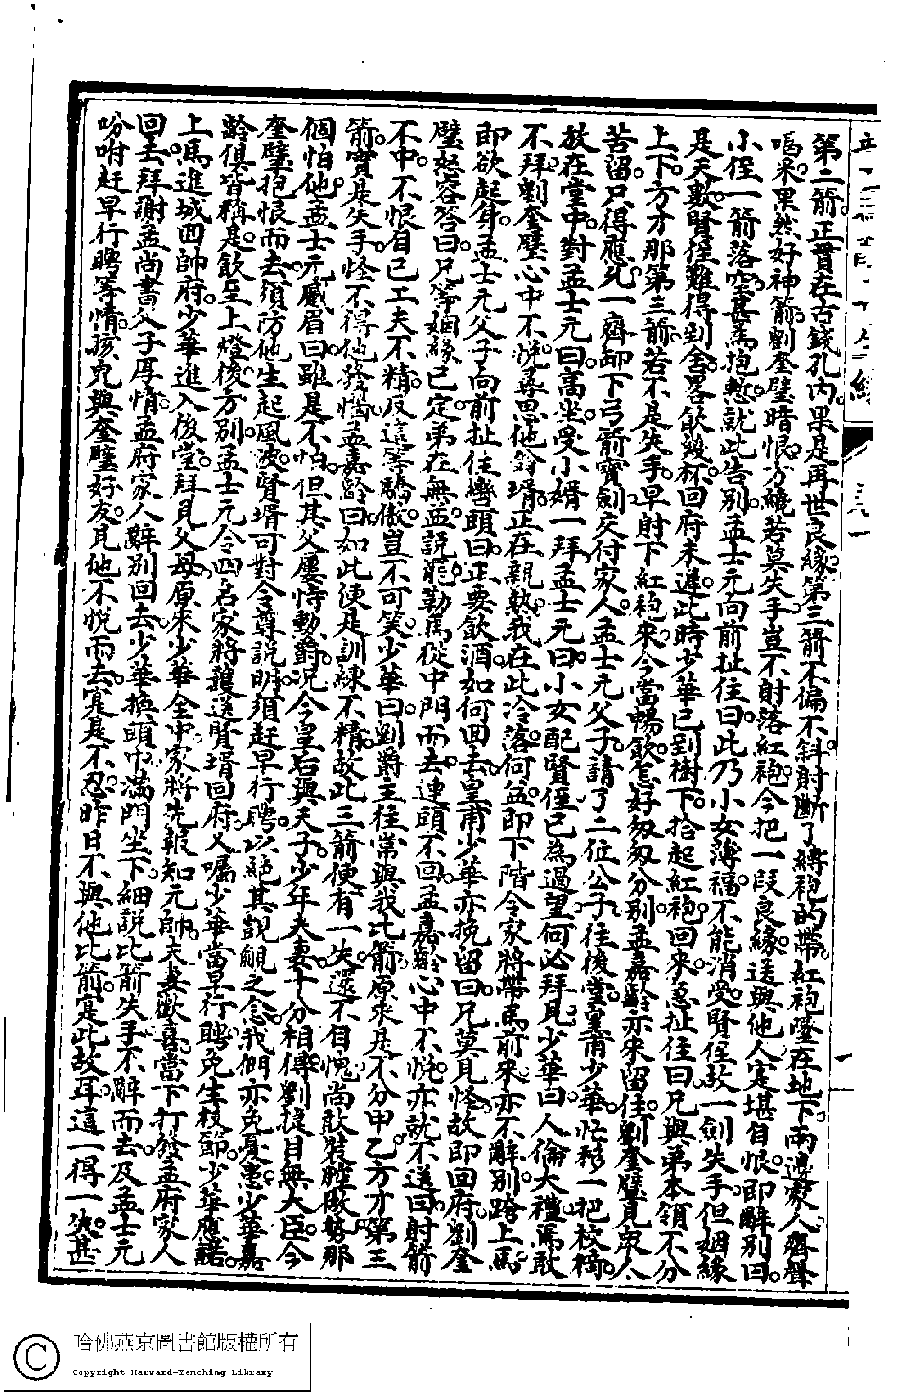 第二箭正貫在古錢孔内果是再世良緣第三箭不偏不斜射斷了縛袍的帶紅袍墜在地下兩邊家人齊聲
嘔采果然好神箭劉奎璧暗恨方纔若莫失手豈不射落紅袍今把一段良緣送與他人寔堪自恨即辭別曰
小侄一箭落空甚為抱愁就此告别孟士元向前扯住曰此乃小女薄福不能消受賢侄故一劍失手但姻緣
是天數賢侄難得到舍畧飲幾杯回府未遲此時少華已到樹下拾起紅袍回來急扯住曰兄與弟本領不分
上下方才那第三箭若不是失手早射下紅袍來今當暢飲怎好匆匆分别孟嘉齡亦來留住劉奎璧見衆人
苦留只得應允一齊卸下弓箭寶劍交付家人孟士元父子請了二位公子往後堂皇甫少華忙移一把校椅
放在堂中對孟士元曰高坐受小婿一拜孟士元曰小女配賢侄已為過望何必拜見少華曰人倫大禮焉敢
不拜劉奎璧心中不悦尋思他翁壻正在親熱我在此冷落何益即下階令家將帶馬前來亦不辭别跨上馬
即欲起身孟士元父子向前扯住轡頭曰正要飲酒如何回去皇甫少華亦挽留曰兄莫見怪故即回府劉奎
璧怒容答曰兄等姻緣已定弟在無益説罷勒馬從中門而去連頭不回孟嘉齡心中不悦亦就不送回射箭
不中不恨自己工夫不精反這等驕傲豈不可笑少華曰劉爵主往常與我比箭原來是不分甲乙方才第三
箭實是失手怪不得他發惱孟嘉齡曰如此便是訓練不精故此三箭便有一失還不自愧尚敢裝腔做勢那
個怕他孟士元蹙眉曰雖是不怕但其父屢恃動爵况今皇后與天子少年夫妻十分相得劉捷目無大臣今
奎璧抱恨而去須防他生起風波賢壻可對令尊説明須赶早行聘以絕其覬覦之念我們亦免身憂少華嘉
齡俱皆稱是飲至上燈後方别孟士元令四名家將護送賢壻回府又囑少華當早行聘免生枝節少華應諾
上馬進城回帥府少華進入後堂拜見父母原來少華令中家將先報知元帥夫妻歡喜當下打發孟府家人
回去拜謝孟尚書父子厚情孟府家人辭别回去少華摇頭巾滿門坐下細説比箭失手不辭而去及孟士元
吩咐赶早行聘等情孩兒與奎璧好友見他不悦而去寔是不忍昨日不與他比箭寔此故耳這一得一失甚
哈佛燕京圖書館版權所有
Copyright Harvard-Yenching Library